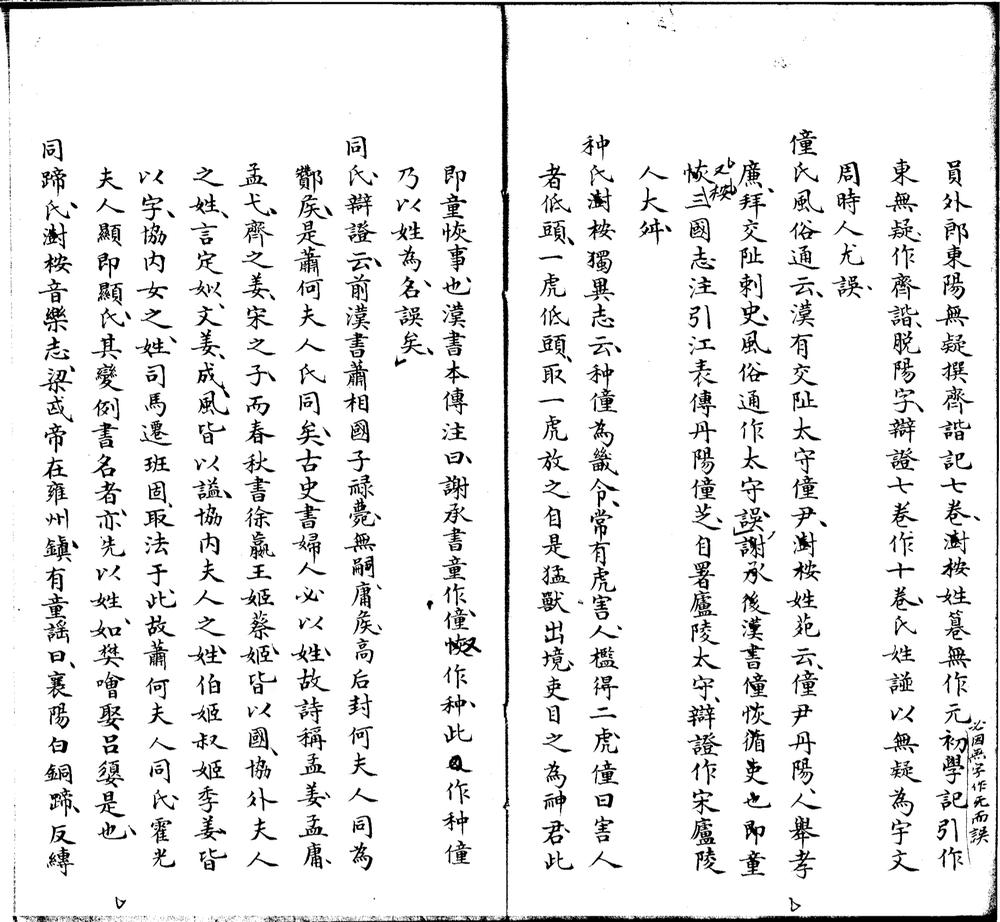 員外郎東陽無疑撰齊諧記七卷、澍桉姓纂無作元、初學記引作
必因無字作旡而誤
東無疑、作齊諧、脫陽字、辯證七卷作十卷、氏姓諩以無疑為宇文
周時人尤誤、
僮氏風俗通云、漢有交阯太守僮尹、澍桉姓苑云、僮尹丹陽人、舉孝
廉、拜交阯剌史、風俗通作太守誤、」謝承後漢書僮恢循吏也即童
恢、又桉三國志注引江表傳丹陽僮芝、自署廬陵太守、辯證作宋廬陵
人大舛、
种氏澍桉獨異志云、种僮為畿令、常有虎害人、檻得二虎僮曰害人
者低頭、一虎低頭、取一虎放之自是猛獸出境、吏目之為神君、此
即童恢事也、漢書本傳注曰、謝承書童作僮、恢又作种、此又作种僮
乃以姓為名、誤矣、」
同氏、辯證云、前漢書蕭相國子祿薨、無嗣、庸矦、高后封何夫人同為
酇矦、是蕭何夫人氏同矣、古史書婦人必以姓、故詩稱孟姜、孟庸、
孟弋、齊之姜、宋之子、而春秋書徐嬴王姬蔡姬、皆以國、協外夫人
之姓、言定姒、文姜、成風、皆以謚、協内夫人之姓、伯姬叔姬季姜、皆
以字、協内女之姓、司馬遷班固、取法于此、故蕭何夫人同氏、霍光
夫人顯即顯氏、其變例書名者、亦先以姓、如樊噲娶吕嬃是也、
同蹄氏、澍桉音樂志、梁武帝在雍州鎮、有童謡曰、襄陽白銅蹄、反縛